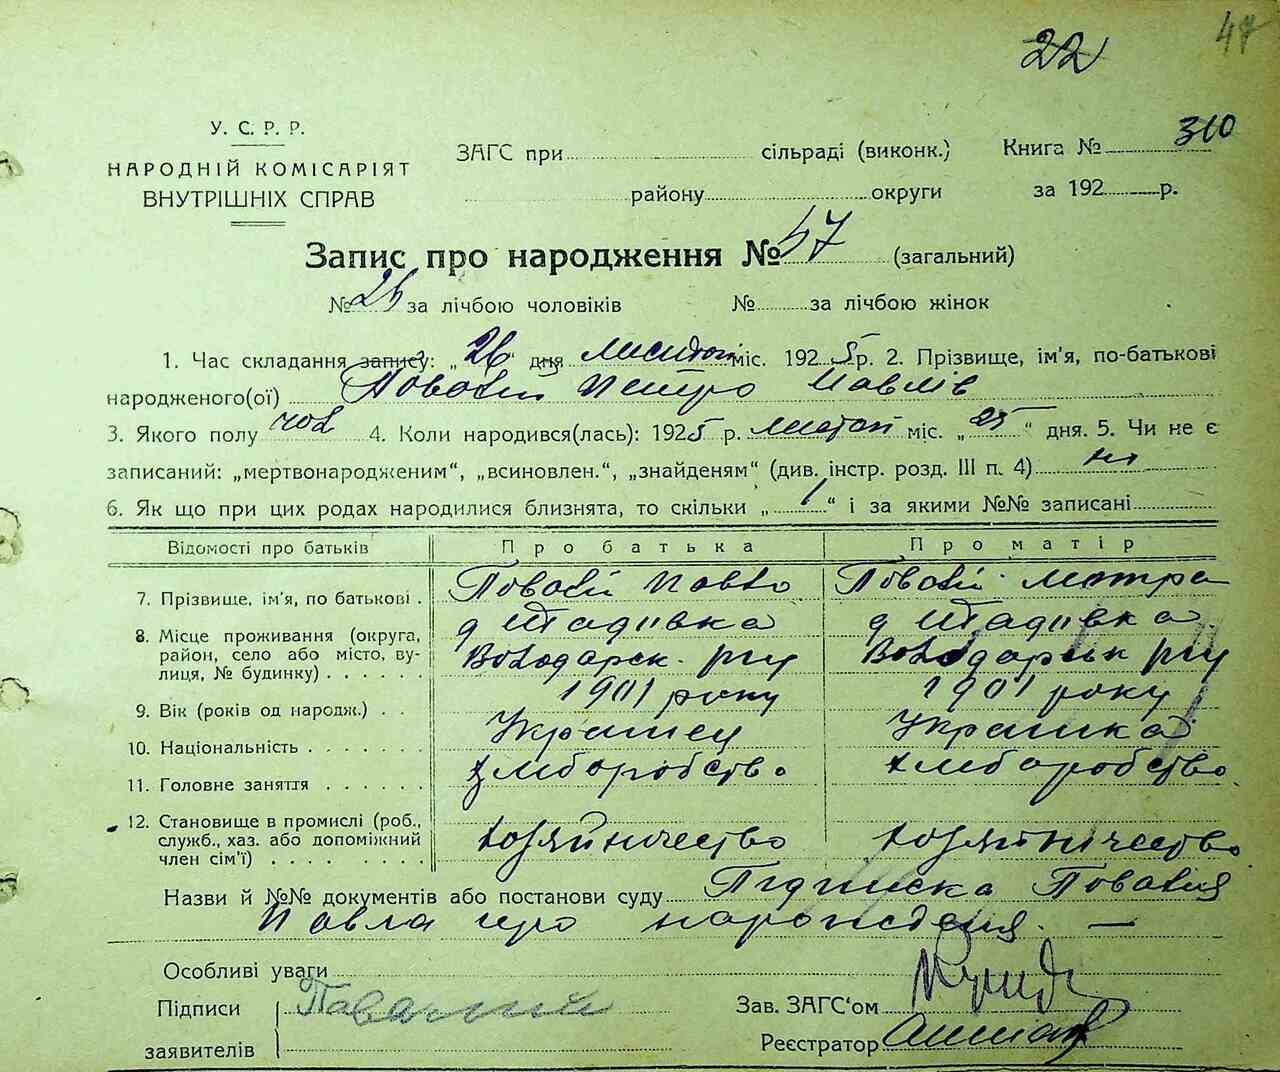 47
22
У. С. Р. Р.
НАРОДНІЙ КОМІСАРІЯТ
ВНУТРІШНІХ СПРАВ
ЗАГС при сільраді (виконк.) Книга № 310
району округи за 192 р.
Запис про народження № 57 (загальний)
№ 25 за лічбою чоловіків № за лічбою жінок
1. Час складання запису: „26“ дня листоп міс. 1925 р. 2. Прізвище, ім'я, по-батькові
народженого(ої) Пововій Петро Павлів
3. Якого полу чол 4. Коли народився(лась): 1925 р. листоп міс. „25“ дня. 5. Чи не є
записаний: „мертвонародженим“, „всиновлен.“, „знайденям“ (див. інстр. розд. III п. 4) ні
6. Як що при цих родах народилися близнята, то скільки „1“ і за якими №№ записані
Відомості про батьків Про батька Про матір
7. Прізвище, ім'я, по батькові . Павло Мотря
8. Місце проживання (округа, д Тадіївка д Тадіївка
район, село або місто, ву- Володарск. рну Володарськ рну
лиця, № будинку) . . . . . .
9. Вік (років од народж.) . . 1901 року 1901 року
10. Національність . . . . . . . Українец Українка
11. Головне заняття . . . . . . хліборобство хліборобство
12. Становище в промислі (роб.,
служб., хаз. або допоміжний хозяйничество хозяйничество
член сім'ї) . . . . . . . .
Назви й №№ документів або постанови суду Підписка
Павла про нарождения. —
Особливі уваги
Підписи Зав. ЗАГС'ом
заявителів Реєстратор